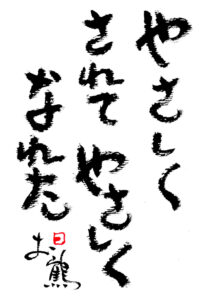 やさしく
されて
やさしく
なれた
お熊